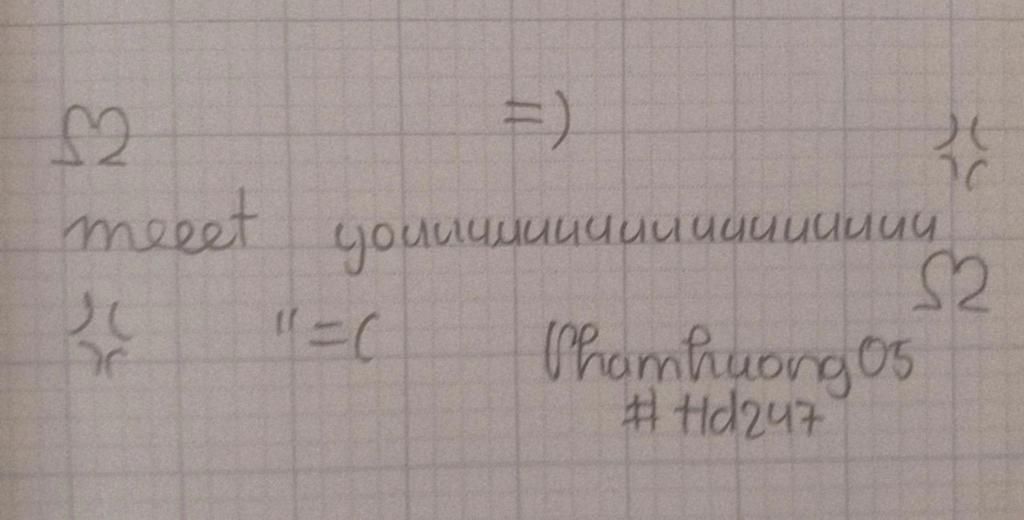 =)
meeet youuuuuuuuuuuuuuuuuu
"=(
Phamhuong05
#Hd247